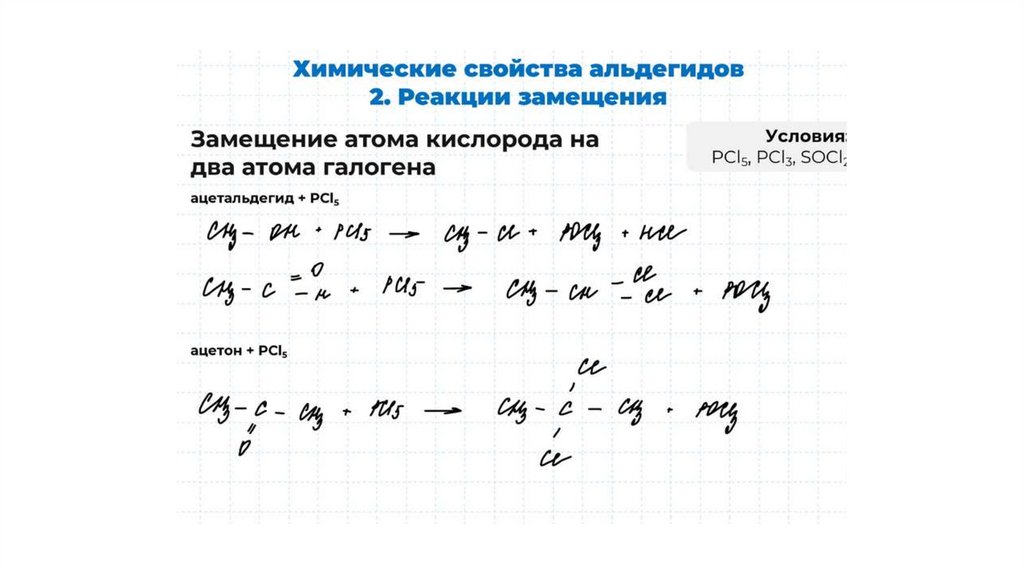 Химические свойства альдегидов
2. Реакции замещения
Замещение атома кислорода на
два атома галогена
Условия:
PCl₅, PCl₃, SOCl₂
ацетальдегид + PCl₅
CH₃ – OH + PCl5 → CH₃ – Cl + POCl₃ + HCl
CH₃ – C =O –H + PCl5 → CH₃ – CH –Cl –Cl + POCl₃
ацетон + PCl₅
Cl
CH₃ – C – CH₃ + PCl5 → CH₃ – C – CH₃ + POCl₃
O
Cl